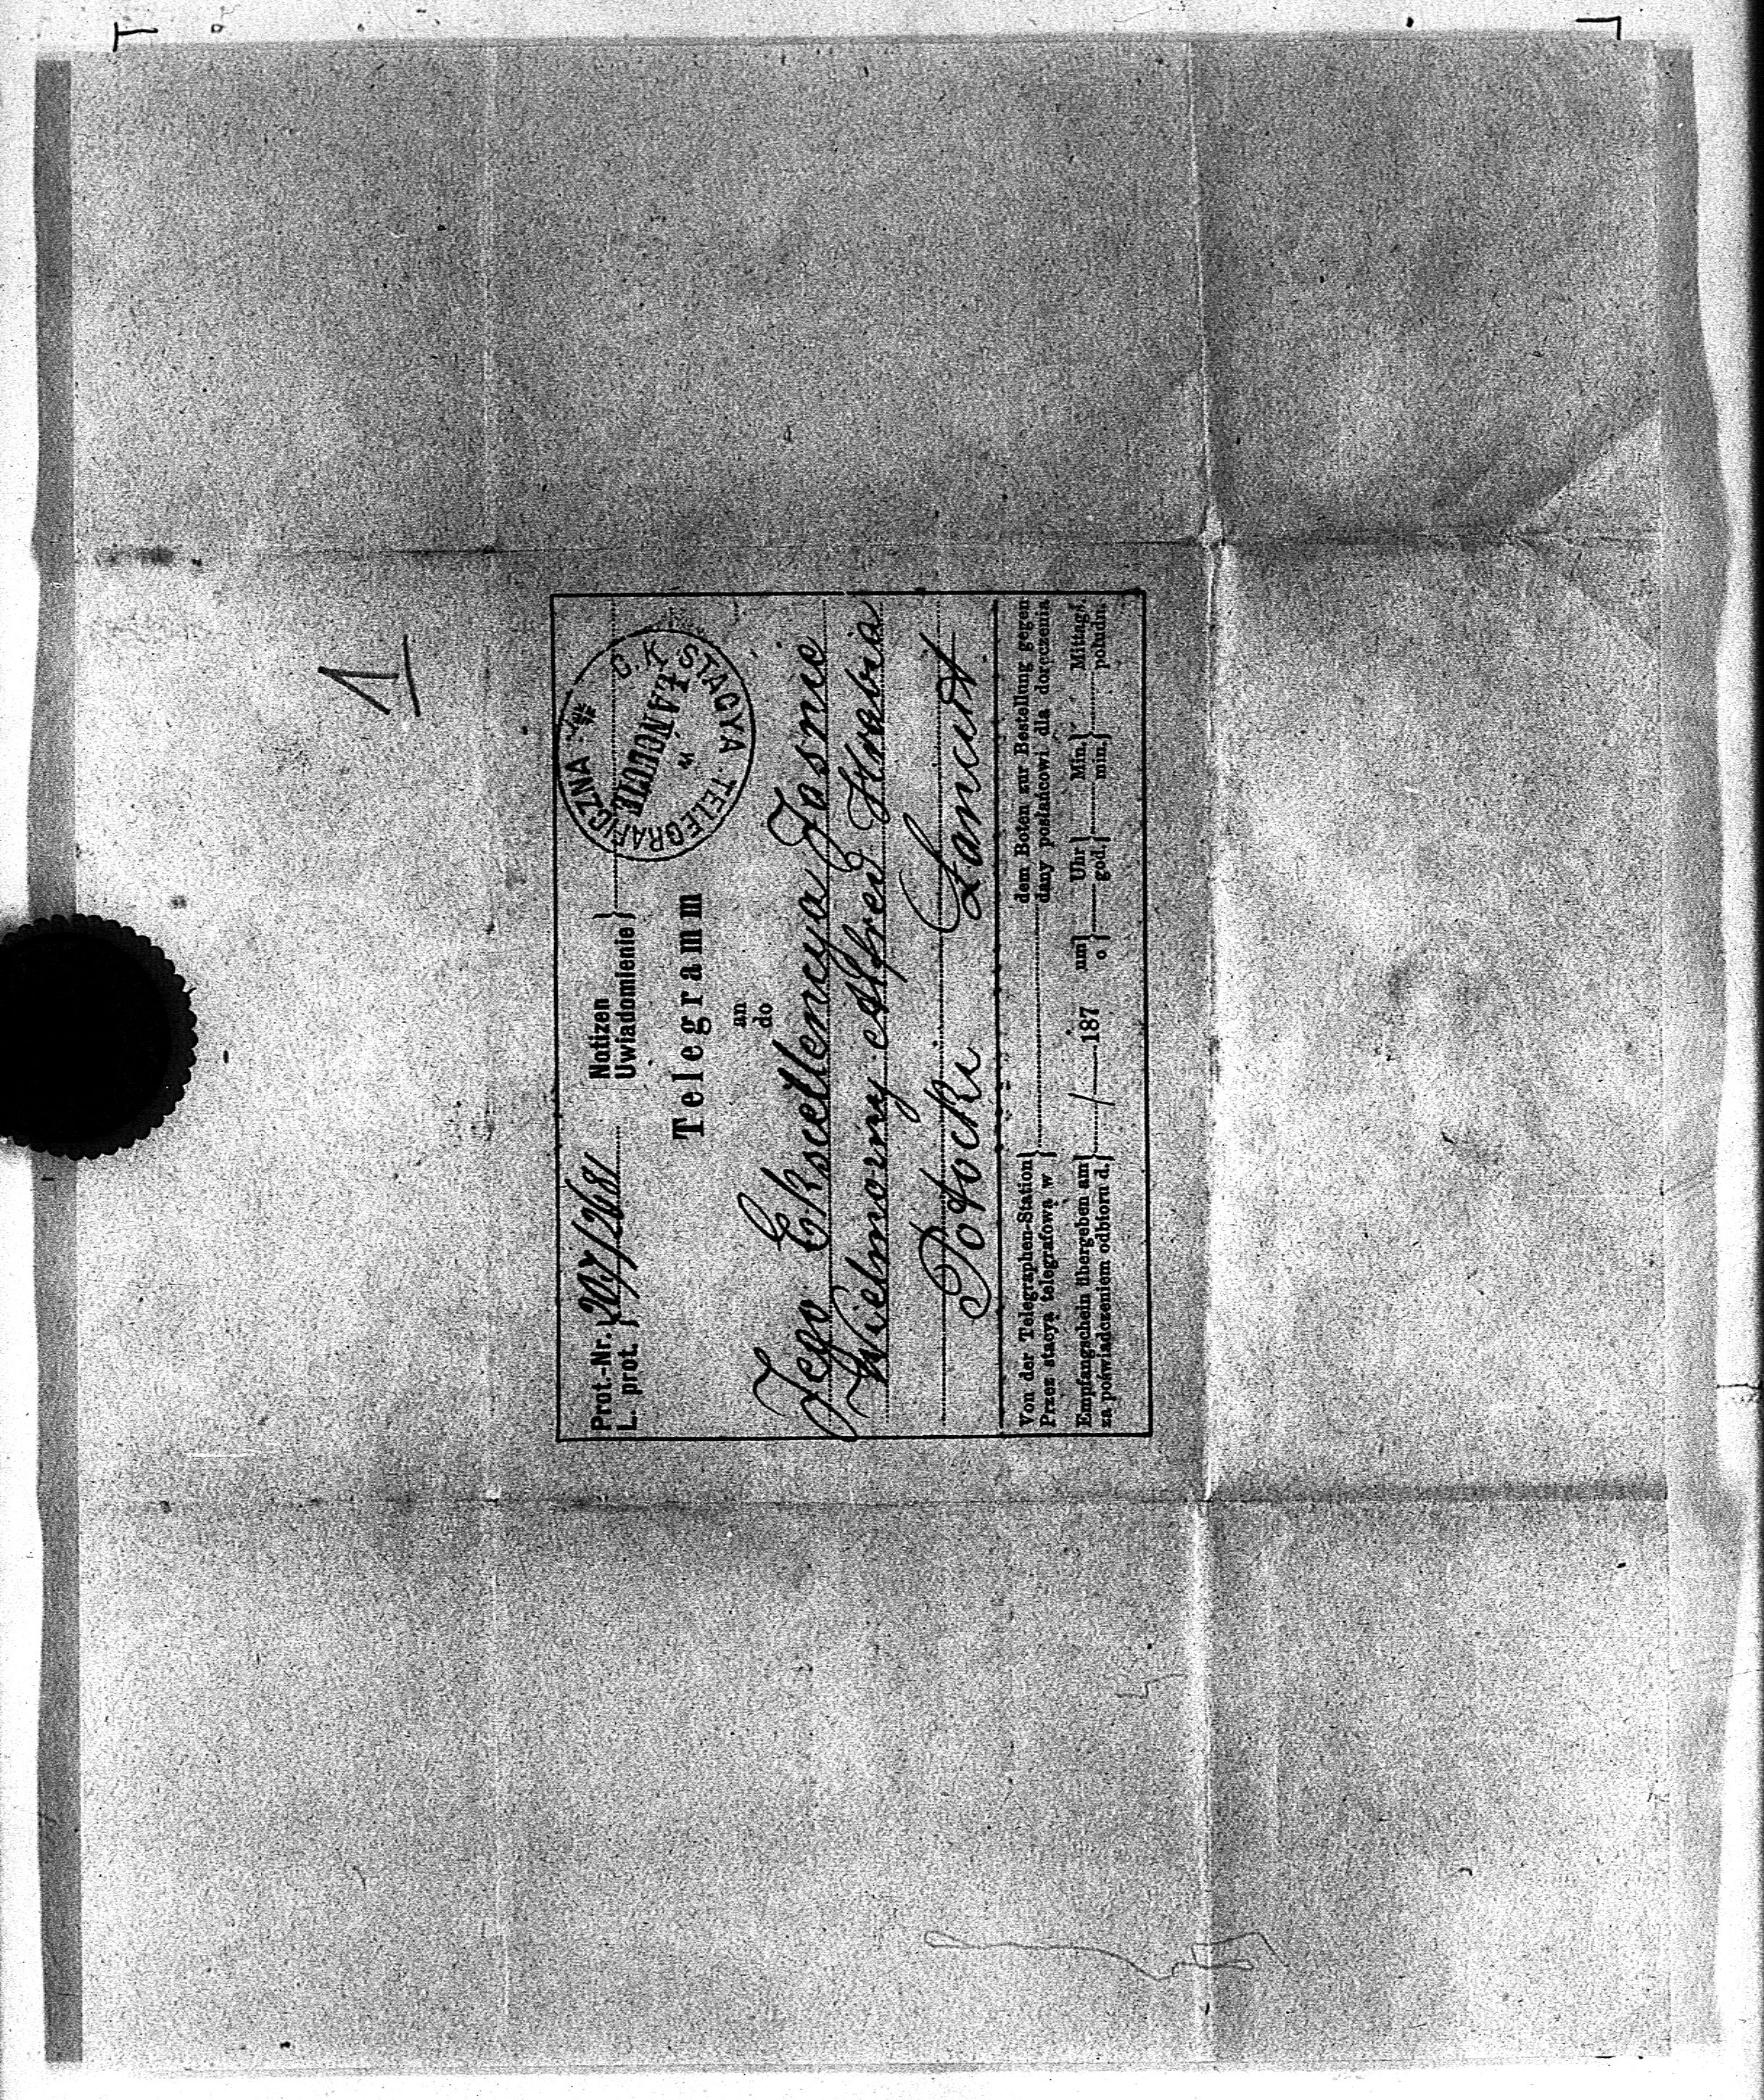 1
Prot.-Nr. } 207/2681 Notizen }
L. prot. } Uwiadomienie }
C. K. STACYA TELEGRAFICZNA
w
ŁAŃCUCIE
Telegramm
an
do
Jego Ekscellencya Jasnie
Wielmożny Alfred Hrabia
Potocki Łancut
Von der Telegraphen-Station } dem Boten zur Bestellung gegen
Przez stacyą telegrafową w } dany posłańcowi dla doręczenia
Empfangschein übergeben am } / 187 um } Uhr } Min. } Mittags.
za poświadczeniem odbioru d. } o } god. } min. } południ.